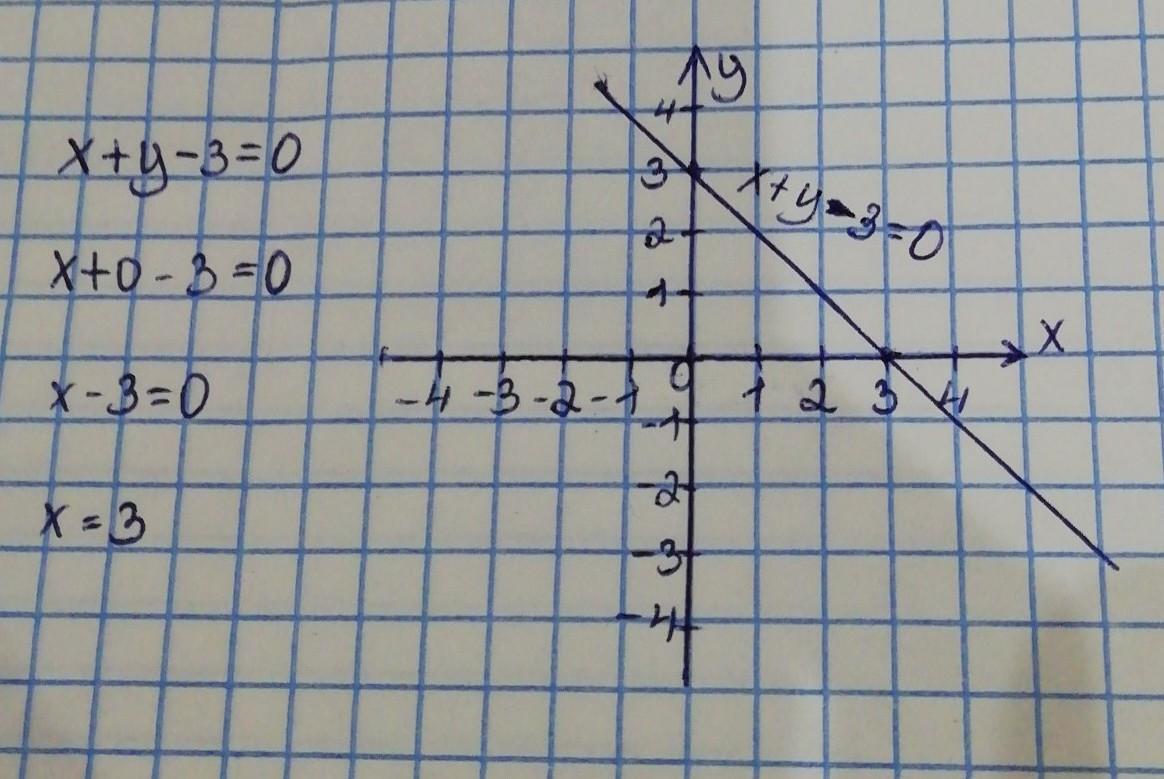 x+y-3=0
x+0-3=0
x-3=0
x=3
y
4
3
x+y-3=0
2
1
x
-4 -3 -2 -1 0 1 2 3 4
-1
-2
-3
-4